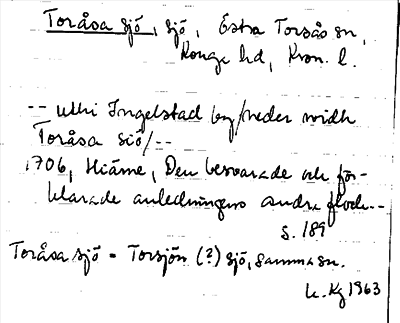 Toråsa sjö, sjö, Östra Torsås sn,
Konga hd, Kron. l.
-- uthi Ingelstad by/neder widh
Toråsa siö/--
1706, Hiärne, Den beswarade och för-
klarade anledningens andra flock --
s. 189
Toråsa sjö = Torsjön (?) sjö, samma sn.
K. Kg 1963